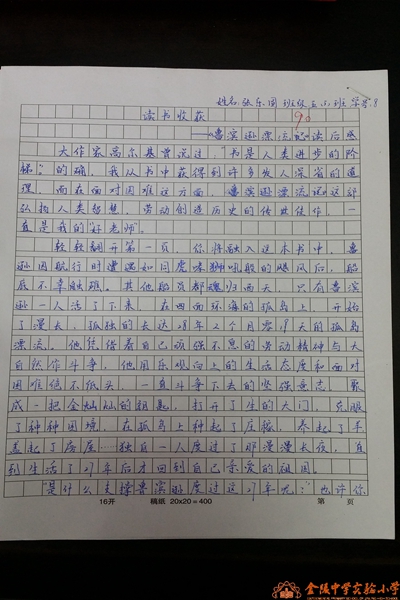 姓名 张乐闻 班级 五5班 学号:8
读书收获 90
——《鲁滨逊漂流记》读后感
大作家高尔基曾说过“书是人类进步的阶
梯。”的确,我从书中获得到许多发人深省的道
理。而在面对困难这方面,《鲁滨逊漂流记》这部
弘扬人类智慧,劳动创造历史的传世佳作,一
直是我的“好老师”。
轻轻翻开第一页,你将融入这本书中,鲁
逊因航行时遭遇如同虎啸狮吼般的飓风后,船
底不幸触难。其他船员都魂归西天,只有鲁滨
逊一人活了下来,在四面环海的孤岛上,开始
了漫长,孤独的去达28年2个月零19天的孤岛
漂流。他凭借着自己顽强不息的劳动精神与大
自然作斗争,他用乐观向上的生活态度和面对
困难绝不低头,一直斗争下去的坚强意志,聚
成一把金灿灿的钥匙,打开了生的大门,克服
了种种困境,在孤岛上种起了庄稼,养起了羊
盖起了房屋……独自一人度过了那漫漫长夜,直
到生活了27年后才回到自己亲爱的祖国。
“是什么支撑鲁滨逊度过这27年呢?”也许你
16开 稿纸 20x20=400 第 页
金陵中学实验小学